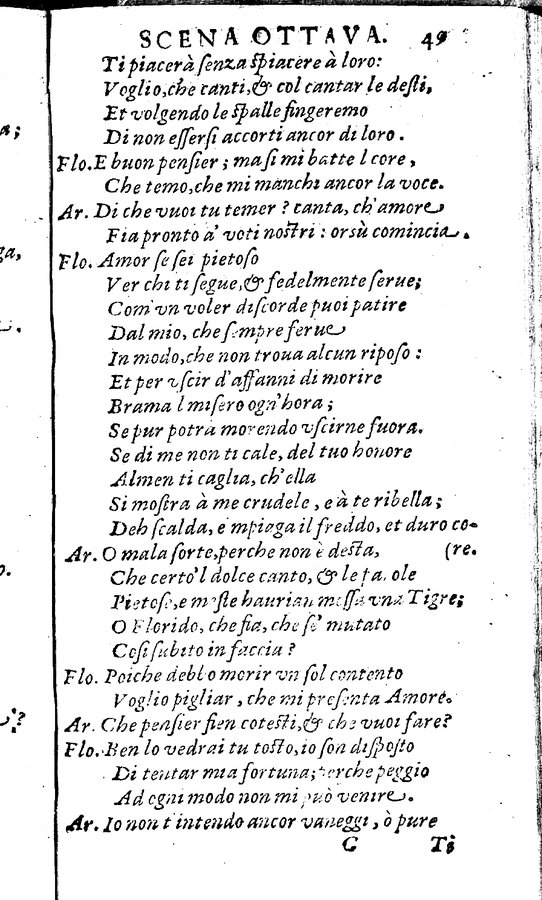 SCENA OTTAVA. 49
Ti piacerà ſenza ſpiacere à loro:
Voglio, che canti, & col cantar le deſti,
Et volgendo le ſpalle fingeremo
Di non eſſerſi accorti ancor di loro.
Flo. E buon penſier; ma ſi mi batte l core,
Che temo, che mi manchi ancor la voce.
Ar. Di che vuoi tu temer? canta, ch'amore
Fia pronto a' voti noſtri: orsù comincia.
Flo. Amor ſe ſei pietoſo
Ver chi ti ſegue, & fedelmente ſerue;
Com' vn voler diſcorde puoi patire
Dal mio, che ſempre ferue
In modo, che non troua alcun ripoſo:
Et per vſcir d'affanni di morire
Brama l miſero ogn'hora;
Se pur potrà morendo vſcirne fuora.
Se di me non ti cale, del tuo honore
Almen ti caglia, ch'ella
Si moſtra à me crudele, e à te ribella;
Deh ſcalda, e mpiaga il freddo, et duro co-
Ar. O mala ſorte, perche non è deſta, (re.
Che certo'l dolce canto, & le pa ole
Pietoſe, e meſte haurian moſſa vna Tigre;
O Florido, che fia, che ſe' mutato
Coſi ſubito in faccia?
Flo. Poiche debbo morir vn ſol contento
Voglio pigliar, che mi preſenta Amore.
Ar. Che penſier ſien coteſti, & che vuoi fare?
Flo. Ben lo vedrai tu toſto, io ſon diſpoſto
Di tentar mia fortuna; perche peggio
Ad ogni modo non mi può venire.
Ar. Io non t'intendo ancor vaneggi, ò pure
C Ti